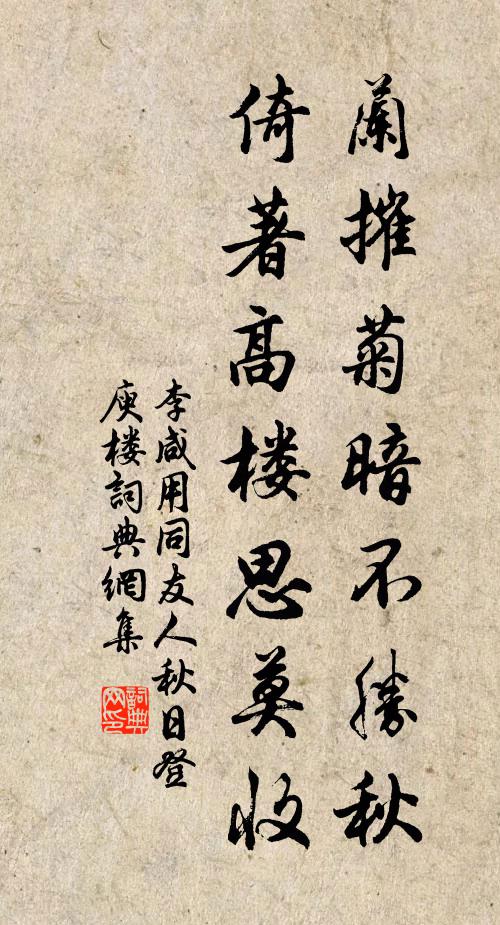 蘭摧菊暗不勝秋
倚著高楼思莫收
李咸用同友人秋日登
庾楼詞典網集
詞典
网印